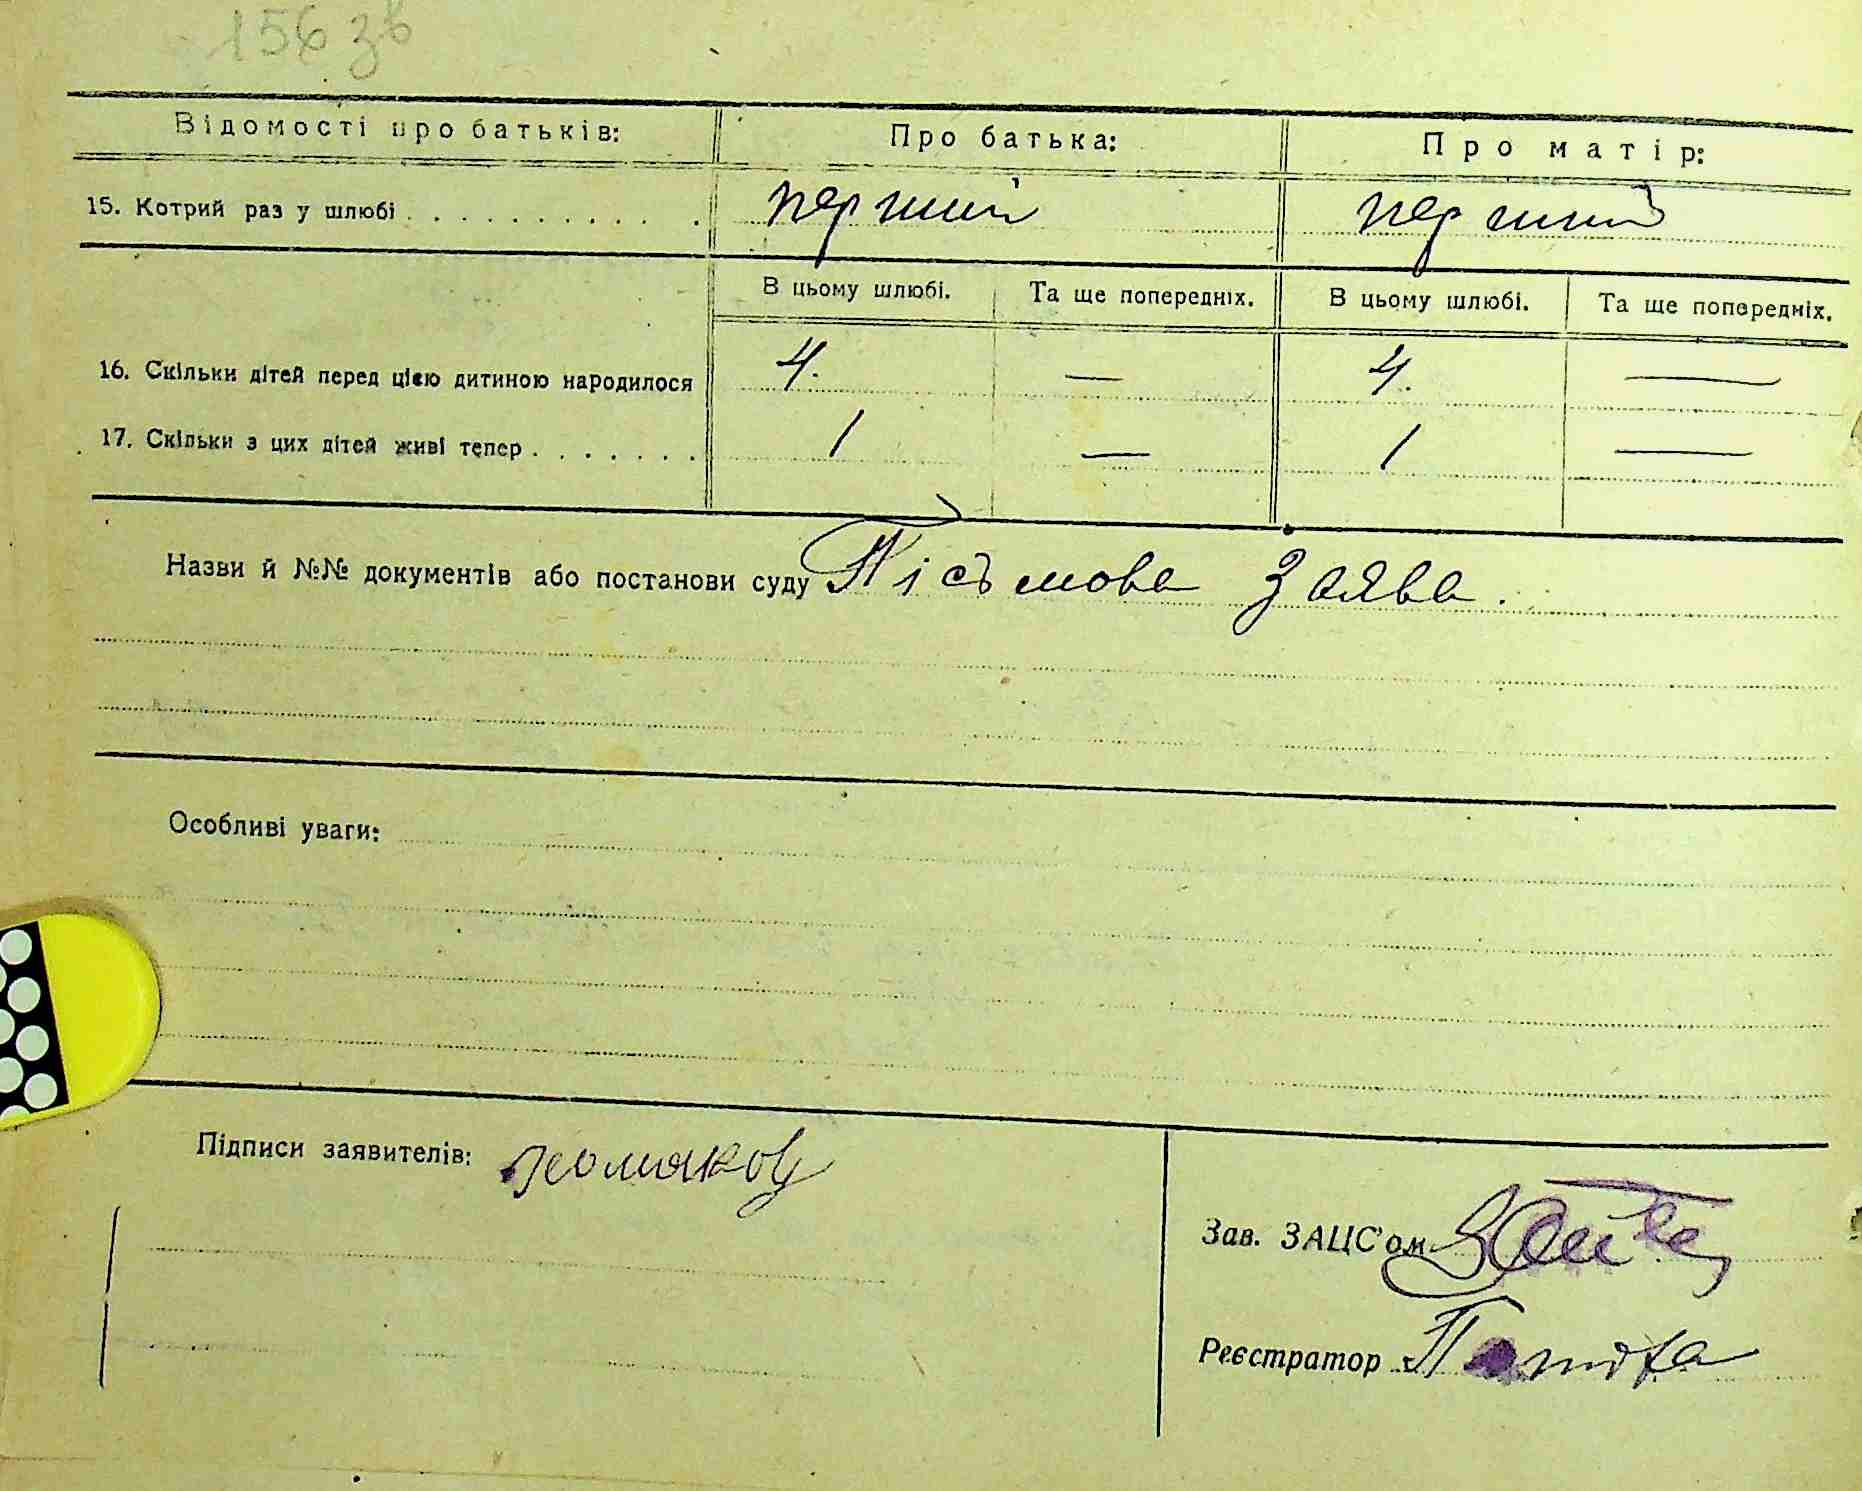 156 зв
Відомості про батьків: Про батька: Про матір:
15. Котрий раз у шлюбі . . . . . . . . . . перший перший
В цьому шлюбі. Та ще попередніх. В цьому шлюбі. Та ще попередніх.
16. Скільки дітей перед цією дитиною народилося 4. — 4. —
17. Скільки з цих дітей живі тепер . . . . . . . 1 — 1 —
Назви й №№ документів або постанови суду Пісьмова Заява.
Особливі уваги:
Підписи заявителів:
Зав. ЗАЦС'ом
Реєстратор